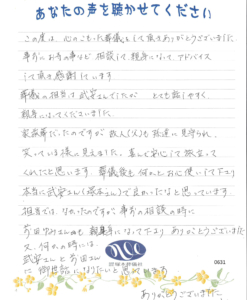 あなたの声を聴かせてください
この度は、心のこもった葬儀をして頂きありがとうございました。
事前にお寺の事など相談して、親身になって、アドバイス
して頂き感謝しています。
葬儀の担当は武宮さんでしたが とても話しやすく、
親身になってくださいました。
家族葬だったのですが故人(父)も孫達に見守られ、
笑っている様に見えました。安心して旅立って
くれたと思います。葬儀後も何かとお心使いして下さり
本当に武宮さん(様)で良かったなと思っています。
担当では、なかったのですが、事前の相談の時に
さんも親身になって下さり ありがとうございました
又、何かの時には、
武宮さんと さんに
に なりたいと思います。
ありがとうございました。
0631